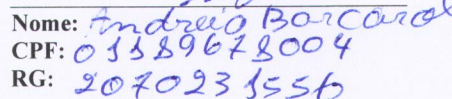 Nome: Andreia Barcarol
CPF: 01889678004
RG: 2070231556